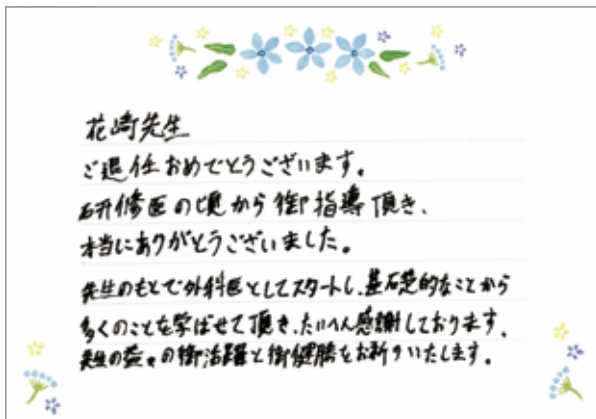 花崎先生
ご退任おめでとうございます。
研修医の頃から御指導頂き、
本当にありがとうございました。
先生のもとで外科医としてスタートし、基礎的なことから
多くのことを学ばせて頂き、たいへん感謝しております。
先生の益々の御活躍と御健勝をお祈りいたします。